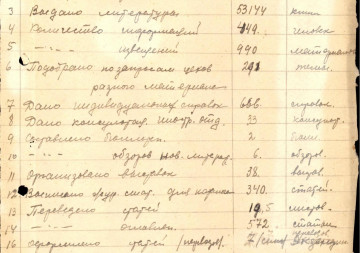 3 Выдано литературы 53144 книг
4 Количество информаций 449. человек
5 —"— извещений 990 материала
6 Подобрано по запросам цехов 291 темы.
разного материала
7 Дано индивидуальных справок 686. справок.
8 Дано консультац. иностр. отд. 33 консульт.
9 Составлено бюллет. 2
10 —"— обзоров нов. литерат. 6. обзоров.
11 Организовано выставок 38. выст.
12 Выписано худ. стат. для картот. 340. статей.
13 Переведено статей 19,5 листов.
14 —"— оглавлен. 572. статьи
16 Оформлено статей /перевод/. 7/